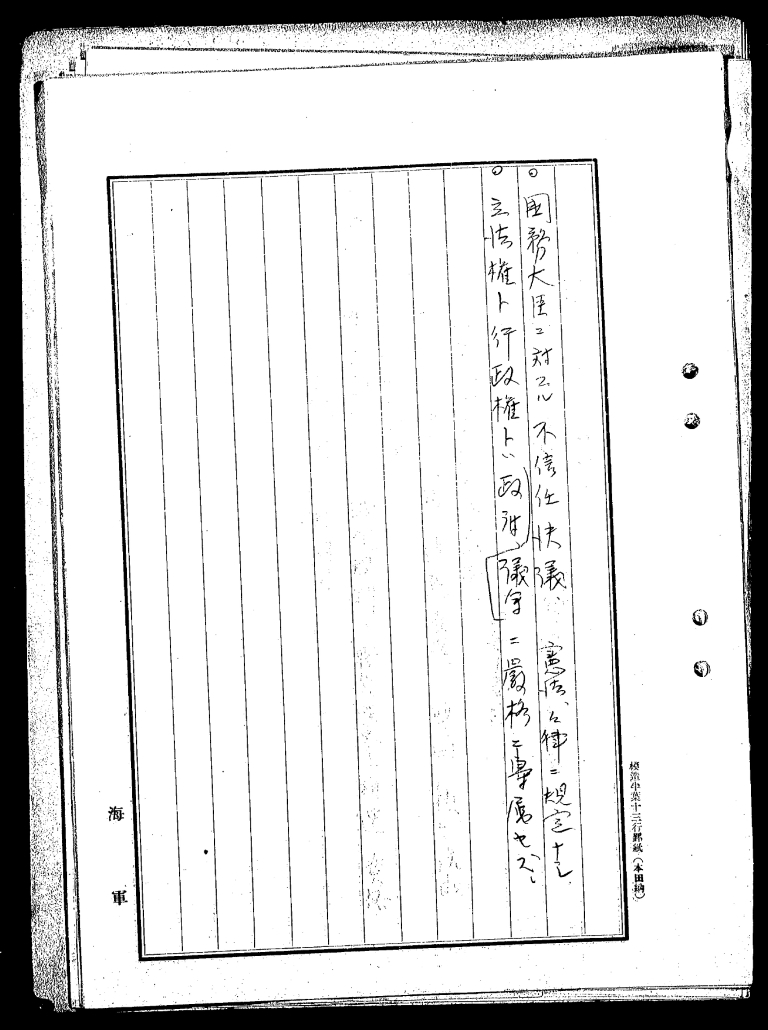 ○国務大臣ニ対スル不信任決議、憲法、法律ニ規定ナシ
○立法権ト行政権トハ政府、議会ニ厳格ニ専属セズ、
模造半葉十三行罫紙(本田納)
海軍